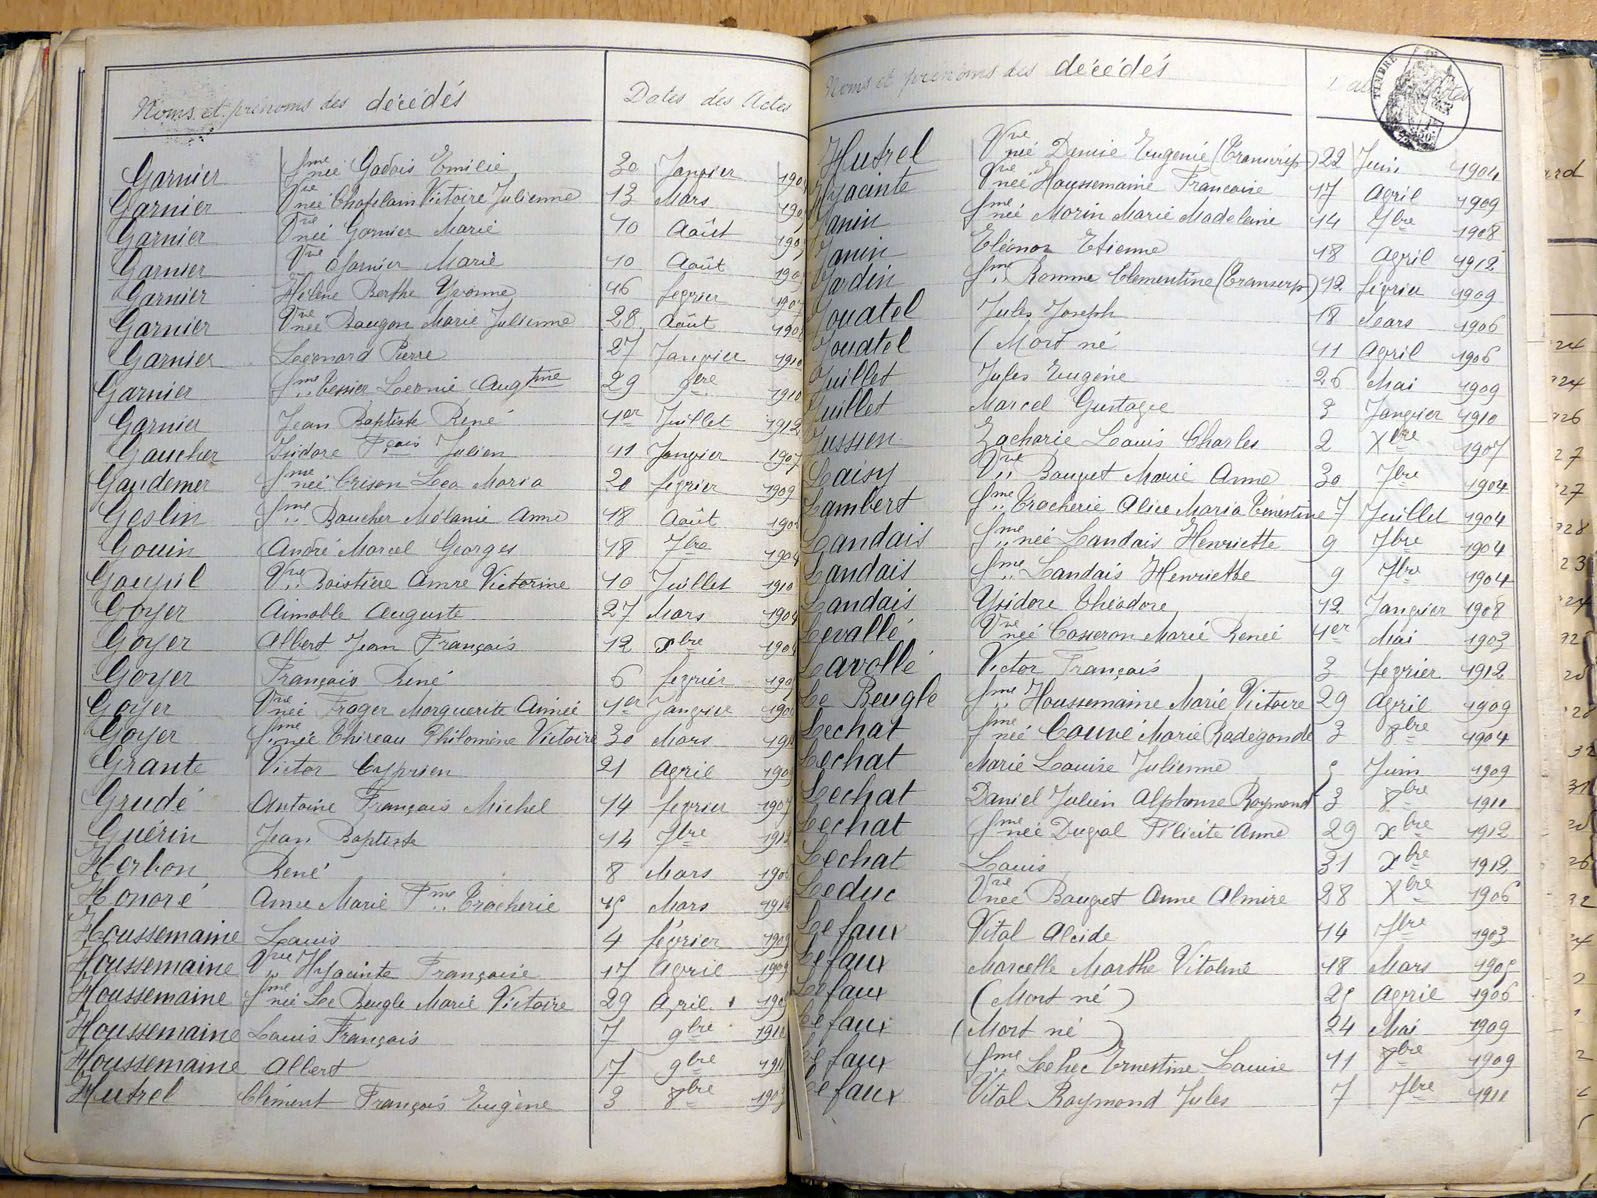 Noms et prénoms des décédés Dates des Actes
Garnier fme née Gadois Emilie 30 Janvier 190
Garnier Vve née Chaplain Victoire Julienne 13 Mars 190
Garnier Vve née Garnier Marie 10 Août 190
Garnier Vve Garnier Marie 10 Août 190
Garnier Hélène Berthe Yvonne 16 février 1907
Garnier Vve née Baugon Marie Julienne 28 Août 190
Garnier Leonard Pierre 27 Janvier 1910
Garnier fme " Tessier Leonie Augtine 29 1910
Garnier Jean Baptiste René 1er Juillet 1912
Gaucher Isidore Fçois Julien 11 Janvier 1907
Gaudemer fme née Crison Lea Maria 20 février 1909
Geslin fme " Boucher Mélanie Anne 18 Août 190
Gouin André Marcel Georges 18 7bre 1904
Goupil Vve " Boistière Anne Victorine 10 Juillet 1910
Goyer Aimable Auguste 27 Mars 1904
Goyer Albert Jean François 12 xbre 190
Goyer François René 6 février 190
Goyer Vve née Frager Marguerite Aimée 1er Janvier 190
Goyer fme née Thireau Philomène Victoire 30 Mars 19
Grante Victor Cyprien 21 Avril 190
Grudé Antoine François Michel 14 février 1907
Guérin Jean Baptiste 14 7bre 1912
Herbon René 8 Mars 190
Honoré Anne Marie Fme " Tracherie 15 Mars 191
Houssemaine Louis 4 février 1909
Houssemaine Vve " Hyacinte Françoise 17 Avril 1909
Houssemaine fme née Le Beugle Marie Victoire 29 Avril 190
Houssemaine Louis François 7 9bre 191
Houssemaine Albert 17 9bre 191
Hutrel Clément François Eugène 3 8bre 190
Noms et prénoms des décédés
TIMBRE
Hutrel Vve née Denise Eugenie (Transcrip) 22 Juin 1904
Hyacinte Vve née Houssemaine Francoise 17 Avril 1909
Janin fme née Morin Marie Madeleine 14 7bre 1908
Janin Eléonor Etienne 18 Avril 1912
Jardin fme " Romme Clementine (Transcrip) 12 février 1909
Jouatel Jules Joseph 18 Mars 1906
Jouatel (Mort né 11 Avril 1906
Juillet Jules Eugène 26 Mai 1909
Juillet Marcel Gustave 3 Janvier 1910
Jussien Zacharie Louis Charles 2 Xbre 1907
Laisy Vve " Bouvet Marie Anne 30 7bre 1904
Lambert fme " Tracherie Alice Maria Ernestine 7 Juillet 1904
Landais fme " née Landais Henriette 9 7bre 1904
Landais fme " Landais Henriette 9 7bre 1904
Landais Ysidore Théodore 12 Janvier 1908
Levallé Vve née Casseron Marie Renée 1er Mai 1903
Lavollé Victor François 3 février 1912
Le Beugle fme " Houssemaine Marie Victoire 29 Avril 1909
Lechat fme née Couvé Marie Radegonde 3 8bre 1904
Lechat Marie Louise Julienne 5 Juin 1909
Lechat Daniel Julien Alphonse Raymond 3 8bre 1911
Lechat fme née Duval Félicité Anne 29 xbre 1912
Lechat Louis 31 xbre 1912
Leduc Vve née Bouvet Anne Almire 28 Xbre 1906
Lefaux Vital Alcide 14 7bre 1903
Lefaux Marcelle Marthe Vitaline 18 Mars 1905
Lefaux (Mort né) 25 Avril 1906
Lefaux (Mort né) 24 Mai 1909
Lefaux fme " Lehec Ernestine Louise 11 8bre 1909
Lefaux Vital Raymond Jules 7 7bre 1911